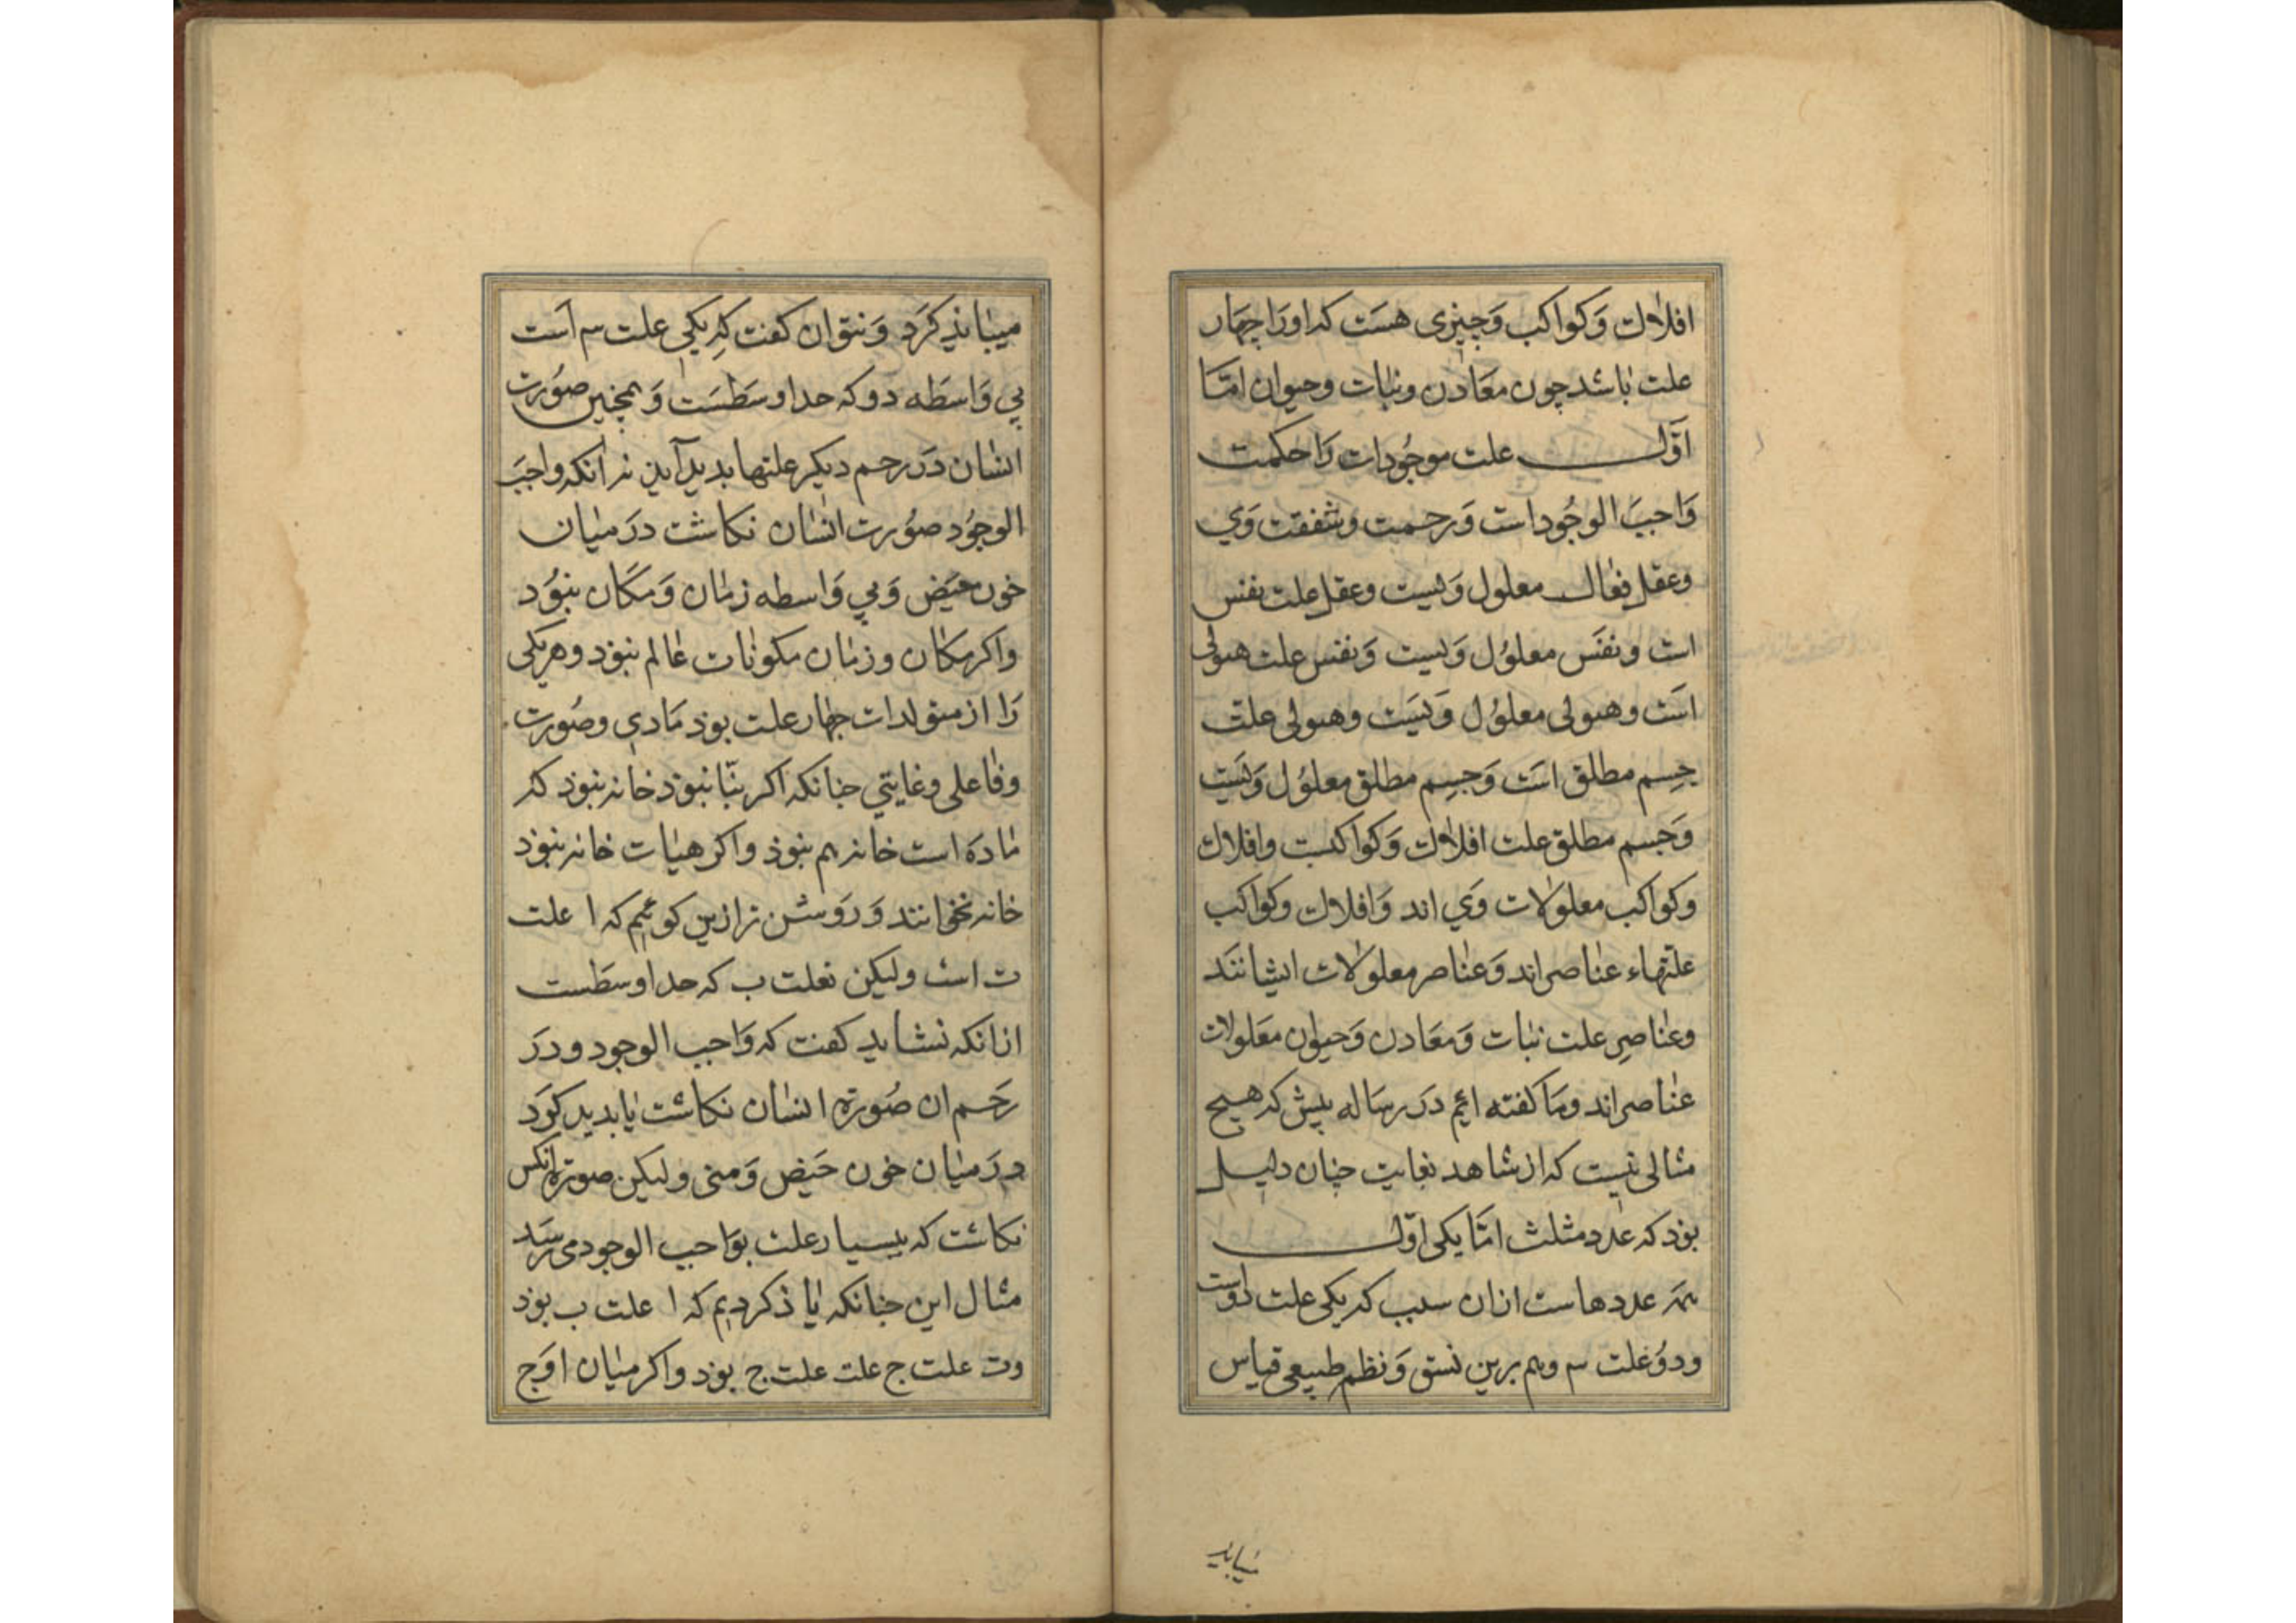 افلاك وَكواكب وَچيزى هسَت كه اورَا چهَار
علت باشد چون معَادن ونبات وحيوان امّا
اوّل علت موجُودات رَا حكمت
وَاجبَ الوجُود است وَرحمت وشفقت وَي
وعقل فعال معلول وَيست وعقل علت نفس
است ونفَس معلوُل وَيست وَنفس علت هيولى
است وهيولى معلوُل وَيست وهيولى علت
جِسم مطلق است وَجسِم مطلق معلوُل وَيست
وَجسم مطلق علت افلاك وَكواكبست وافلاك
وكواكب معلولات وَي اند وَافلاك وكواكب
علتهاء عناصر اند وَعناصر معلولات ايشانند
وعناصِر علت نبات وَمعَادن وَحيوان معَلولات
عناصر اند ومَا كفته ايم درَ رسَاله پيش كه هيچ
مثالى نيست كه از شاهد بغايت چنان دليل
بوذ كه عدد مثلث امّا يكى اوّل
همه عددهاست ازان سبب كه يكى علت دوست
ودوُ علت سه وهم برين نسق وَنظم طبيعى قياس
ميبايذ
ميبايذ كرَد وَنتوان كفت كِه يكي علت سه است
بي وَاسطَه دو كه حد اوسَطسَت وَهمچنين صوُرت
انسان درَ رحم ديكر علتها بديد آيذ نه انكه واجبَ
الوجوُد صوُرت انسان نكاشت درَ ميان
خون حيَض وَبي وَاسطه زمان وَمكَان نبوُد
واكر مكان وزمان مكونات عالم نبوذ وهر يكى
رَا از متولدات چهار علت بوذ مَادي وصوُرت
وفاعلى وغايتي چنانكه اكر بنّا نبوذ خانه نبوذ كه
مادَه است خانه هم نبوذ واكر هيات خانه نبوذ
خانه نخوانند وَروَشن تر ازين كوئيم كه ا علت
ت است وليكن بعلت ب كه حد اوسَطست
ازانكه نشايد كفت كه وَاجب الوجود ودرَ
رحَم ان صُورة انسان نكاشت يا بديد كرَد
درَ ميان خون حَيض وَمنى وليكن صورة انكس
نكاشت كه ببسيار علت بوَاجب الوجود مى رسَد
مثال اين چنانكه يا ذكرديم كه ا علت ب بوذ
وت علت ج علت علت ج بوذ واكر ميان ا وَج